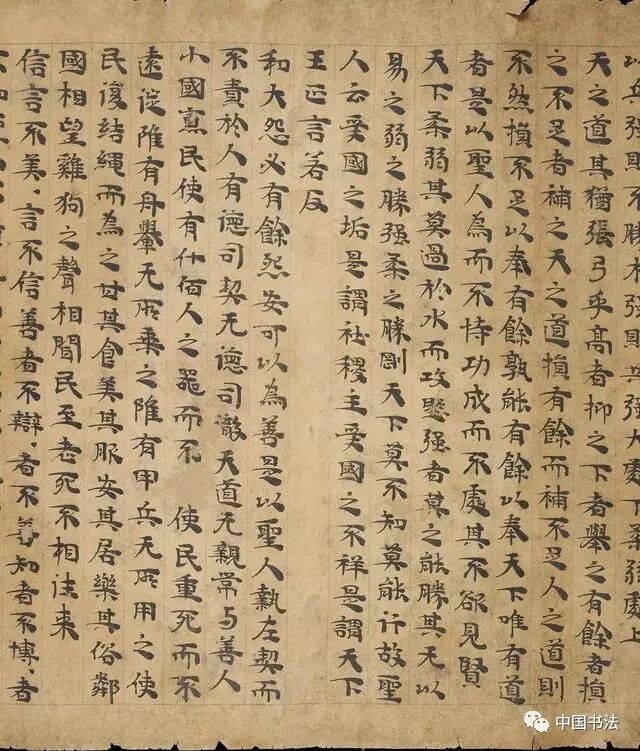 以兵强則不勝木强則共强大處下柔弱處上
天之道其猶張弓乎髙者抑之下者舉之有餘者損
之不足者補之天之道損有餘而補不足人之道則
不然損不足以奉有餘孰能有餘以奉天下唯有道
者是以聖人為而不恃功成而不處其不欲見賢
天下柔弱其莫過於水而攻堅强者莫之能勝其无以
易之弱之勝强柔之勝剛天下莫不知莫能行故聖
人云受國之垢是謂社稷主受國之不祥是謂天下
王正言若反
和大怨必有餘怨安可以為善是以聖人執左契而
不責於人有德司契无德司徹天道无親常与善人
小國寡民使有什佰人之器而不 使民重死而不
遠徙雖有舟轝无所乘之雖有甲兵无所用之使
民復結繩而為之甘其食美其服安其居樂其俗鄰
國相望雞狗之聲相聞民至老死不相往来
信言不美、言不信善者不辯、者不善知者不博、者
中国书法